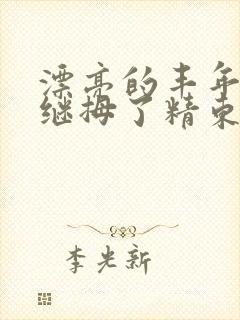 漂亮的丰年
继拇了精束
李光新